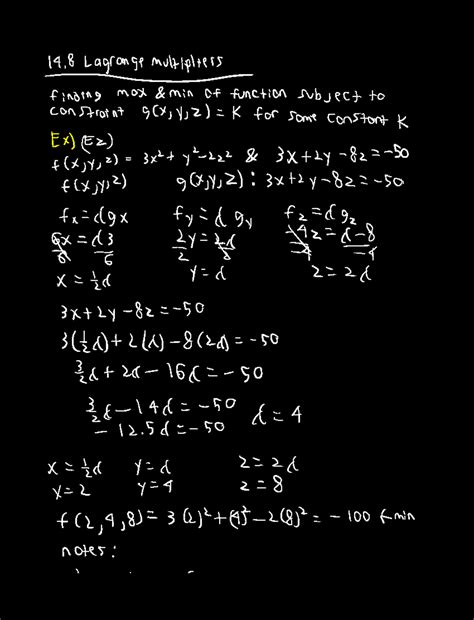 14.8 Lagrange multipliers
finding max & min of function subject to
constraint g(x,y,z) = K for some constant K
Ex) (Ez)
f(x,y,z) = 3x² + y² - 2z² & 3x + 2y - 8z = -50
f(x,y,z) g(x,y,z) : 3x + 2y - 8z = -50
fx = λgx fy = λgy fz = λgz
6x = λ3 2y = 2λ -4z = λ-8
6 6 2 2 -4 -4
x = ½λ y = λ z = 2λ
3x + 2y - 8z = -50
3(½λ) + 2(λ) - 8(2λ) = -50
3/2λ + 2λ - 16λ = -50
3/2λ - 14λ = -50
-12.5λ = -50 λ = 4
x = ½λ y = λ z = 2λ
x = 2 y = 4 z = 8
f(2,4,8) = 3(2)² + (4)² - 2(8)² = -100 ← min
notes: